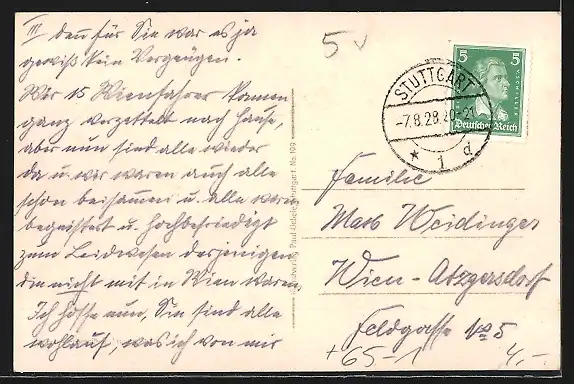 III den für Sie war es ja
gewiß kein Vergnügen.
Wir 15 Wienfahrer kamen
ganz verzettelt nach Hause,
aber nun sind alle wieder
da u. wir waren auch alle
schon beisammen u. alle waren
begeistert u. hochbefriedigt
zum Leidwesen derjenigen
die nicht mit in Wien waren.
Ich hoffe nun, Sie sind alle
wohlauf, was ich von mir
5
STUTTGART
-7.8.28.20-21
* 1 d
5 5
F.V.SCHILLER
Deutsches Reich
Stuttgart. No. 109
Familie
Max Weidinger
Wien-Atzgersdorf
Feldgasse No 5
+65-1
4,-